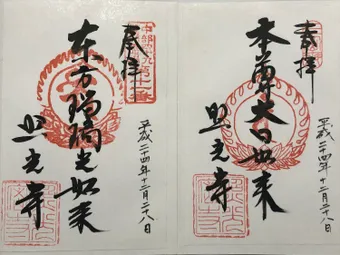 奉拝
本尊大日如来
照光寺
平成二十四年十二月二十八日
奉拝
東方瑠璃光如来
照光寺
平成二十四年十二月二十八日